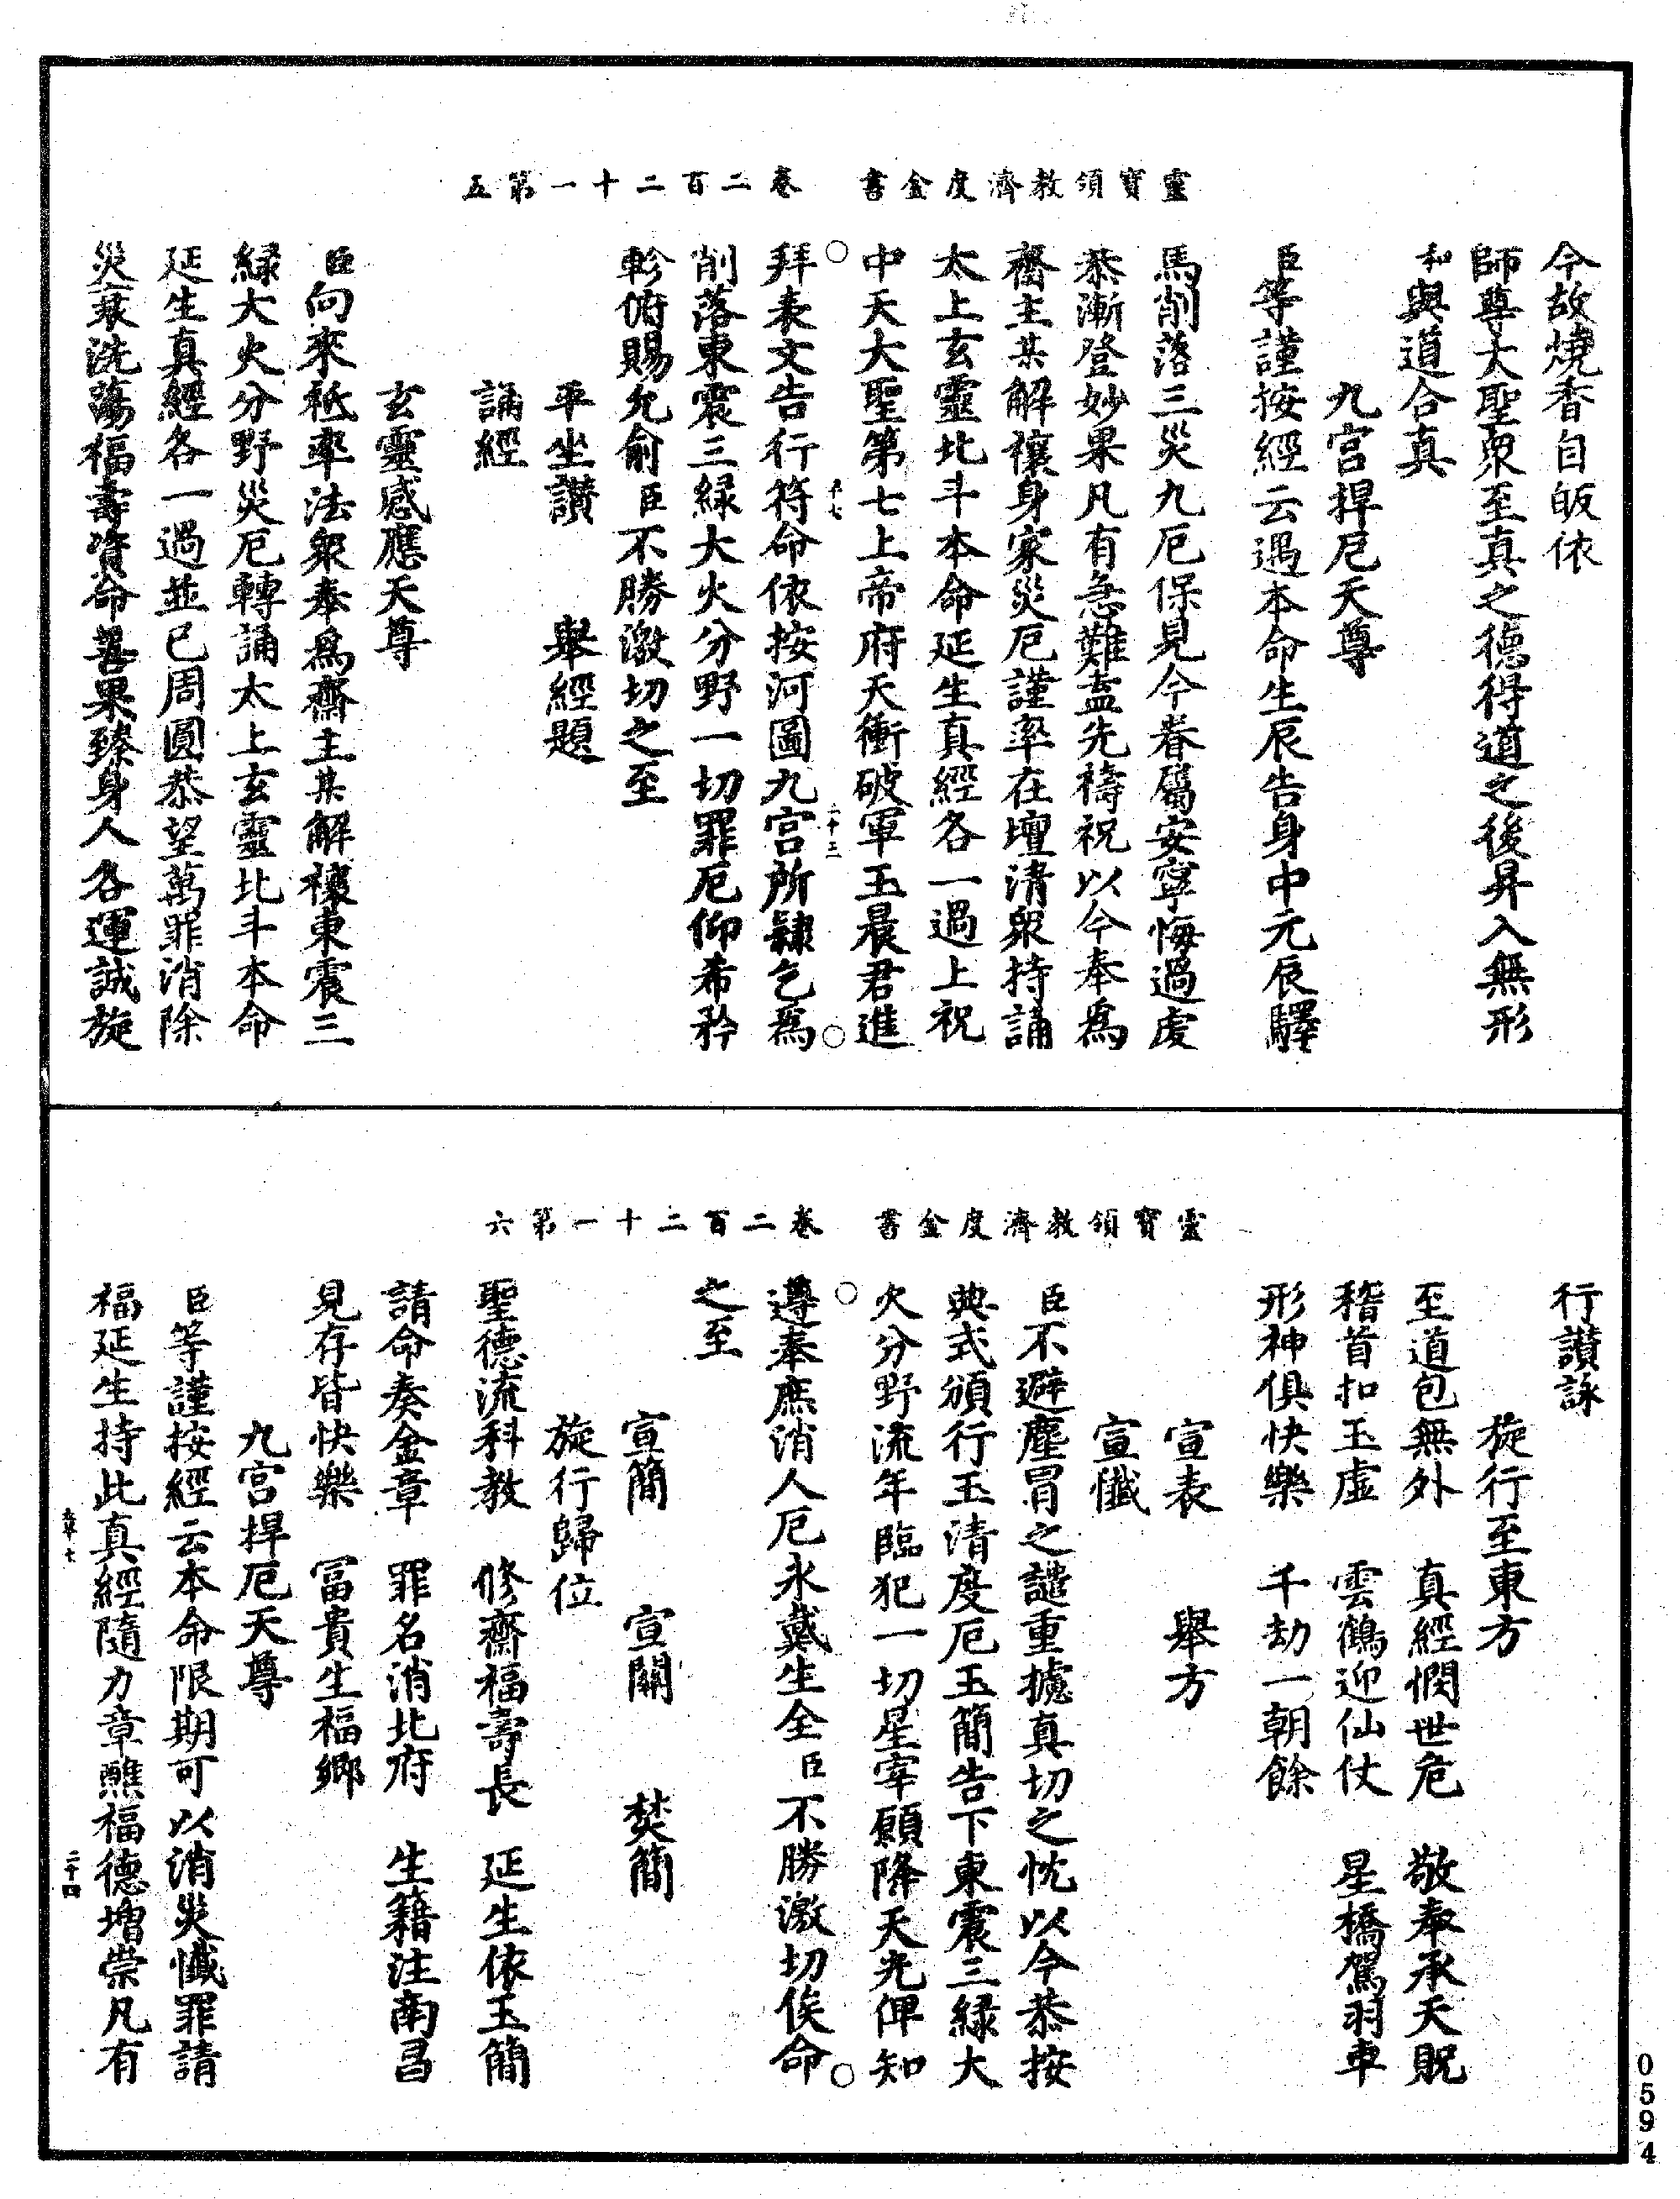 靈寶領教濟度金書　卷二百二十一第五
今故燒香自皈依
師尊大聖衆至真之德得道之後昇入無形
和與道合真
九宮捍厄天尊
臣等謹按經云遇本命生辰告身中元辰驛
馬削落三災九厄保見今眷屬安寧悔過虔
恭漸登妙果凡有急難盍先禱祝以今奉爲
齋主某解禳身家災厄謹率在壇清衆持誦
太上玄靈北斗本命延生真經各一過上祝
中天大聖第七上帝府天衝破軍玉晨君進
拜表文告行符命依按河圖九宮所隸乞爲
削落東震三緑大火分野一切罪厄仰希矜
軫俯賜允俞臣不勝激切之至
平坐讚　舉經題
誦經
玄靈感應天尊
臣向來袛率法衆奉爲齋主某解禳東震三
緑大火分野災厄轉誦太上玄靈北斗本命
延生真經各一過並已周圓恭望萬罪消除
災衰洗蕩福壽資命善果臻身人各運誠旋
二十三
靈寶領教濟度金書　卷二百二十一第六
行讚詠
旋行至東方
至道包無外　真經憫世危　敬奉承天貺
稽首扣玉虛　雲鶴迎仙仗　星橋駕羽車
形神俱快樂　千劫一朝餘
宣表　舉方
宣懺
臣不避塵冒之譴重攄真切之忱以今恭按
典式頒行玉清度厄玉簡告下東震三緑大
火分野流年臨犯一切星宰願降天光俾知
遵奉庶消人厄永戴生全臣不勝激切俟命
之至
宣簡　宣關　焚簡
旋行歸位
聖德流科教　修齋福壽長　延生依玉簡
請命奏金章　罪名消北府　生籍注南昌
見存皆快樂　冨貴生福鄉
九宮捍厄天尊
臣等謹按經云本命限期可以消災懺罪請
福延生持此真經隨力章醮福德增崇凡有
二十四
0594